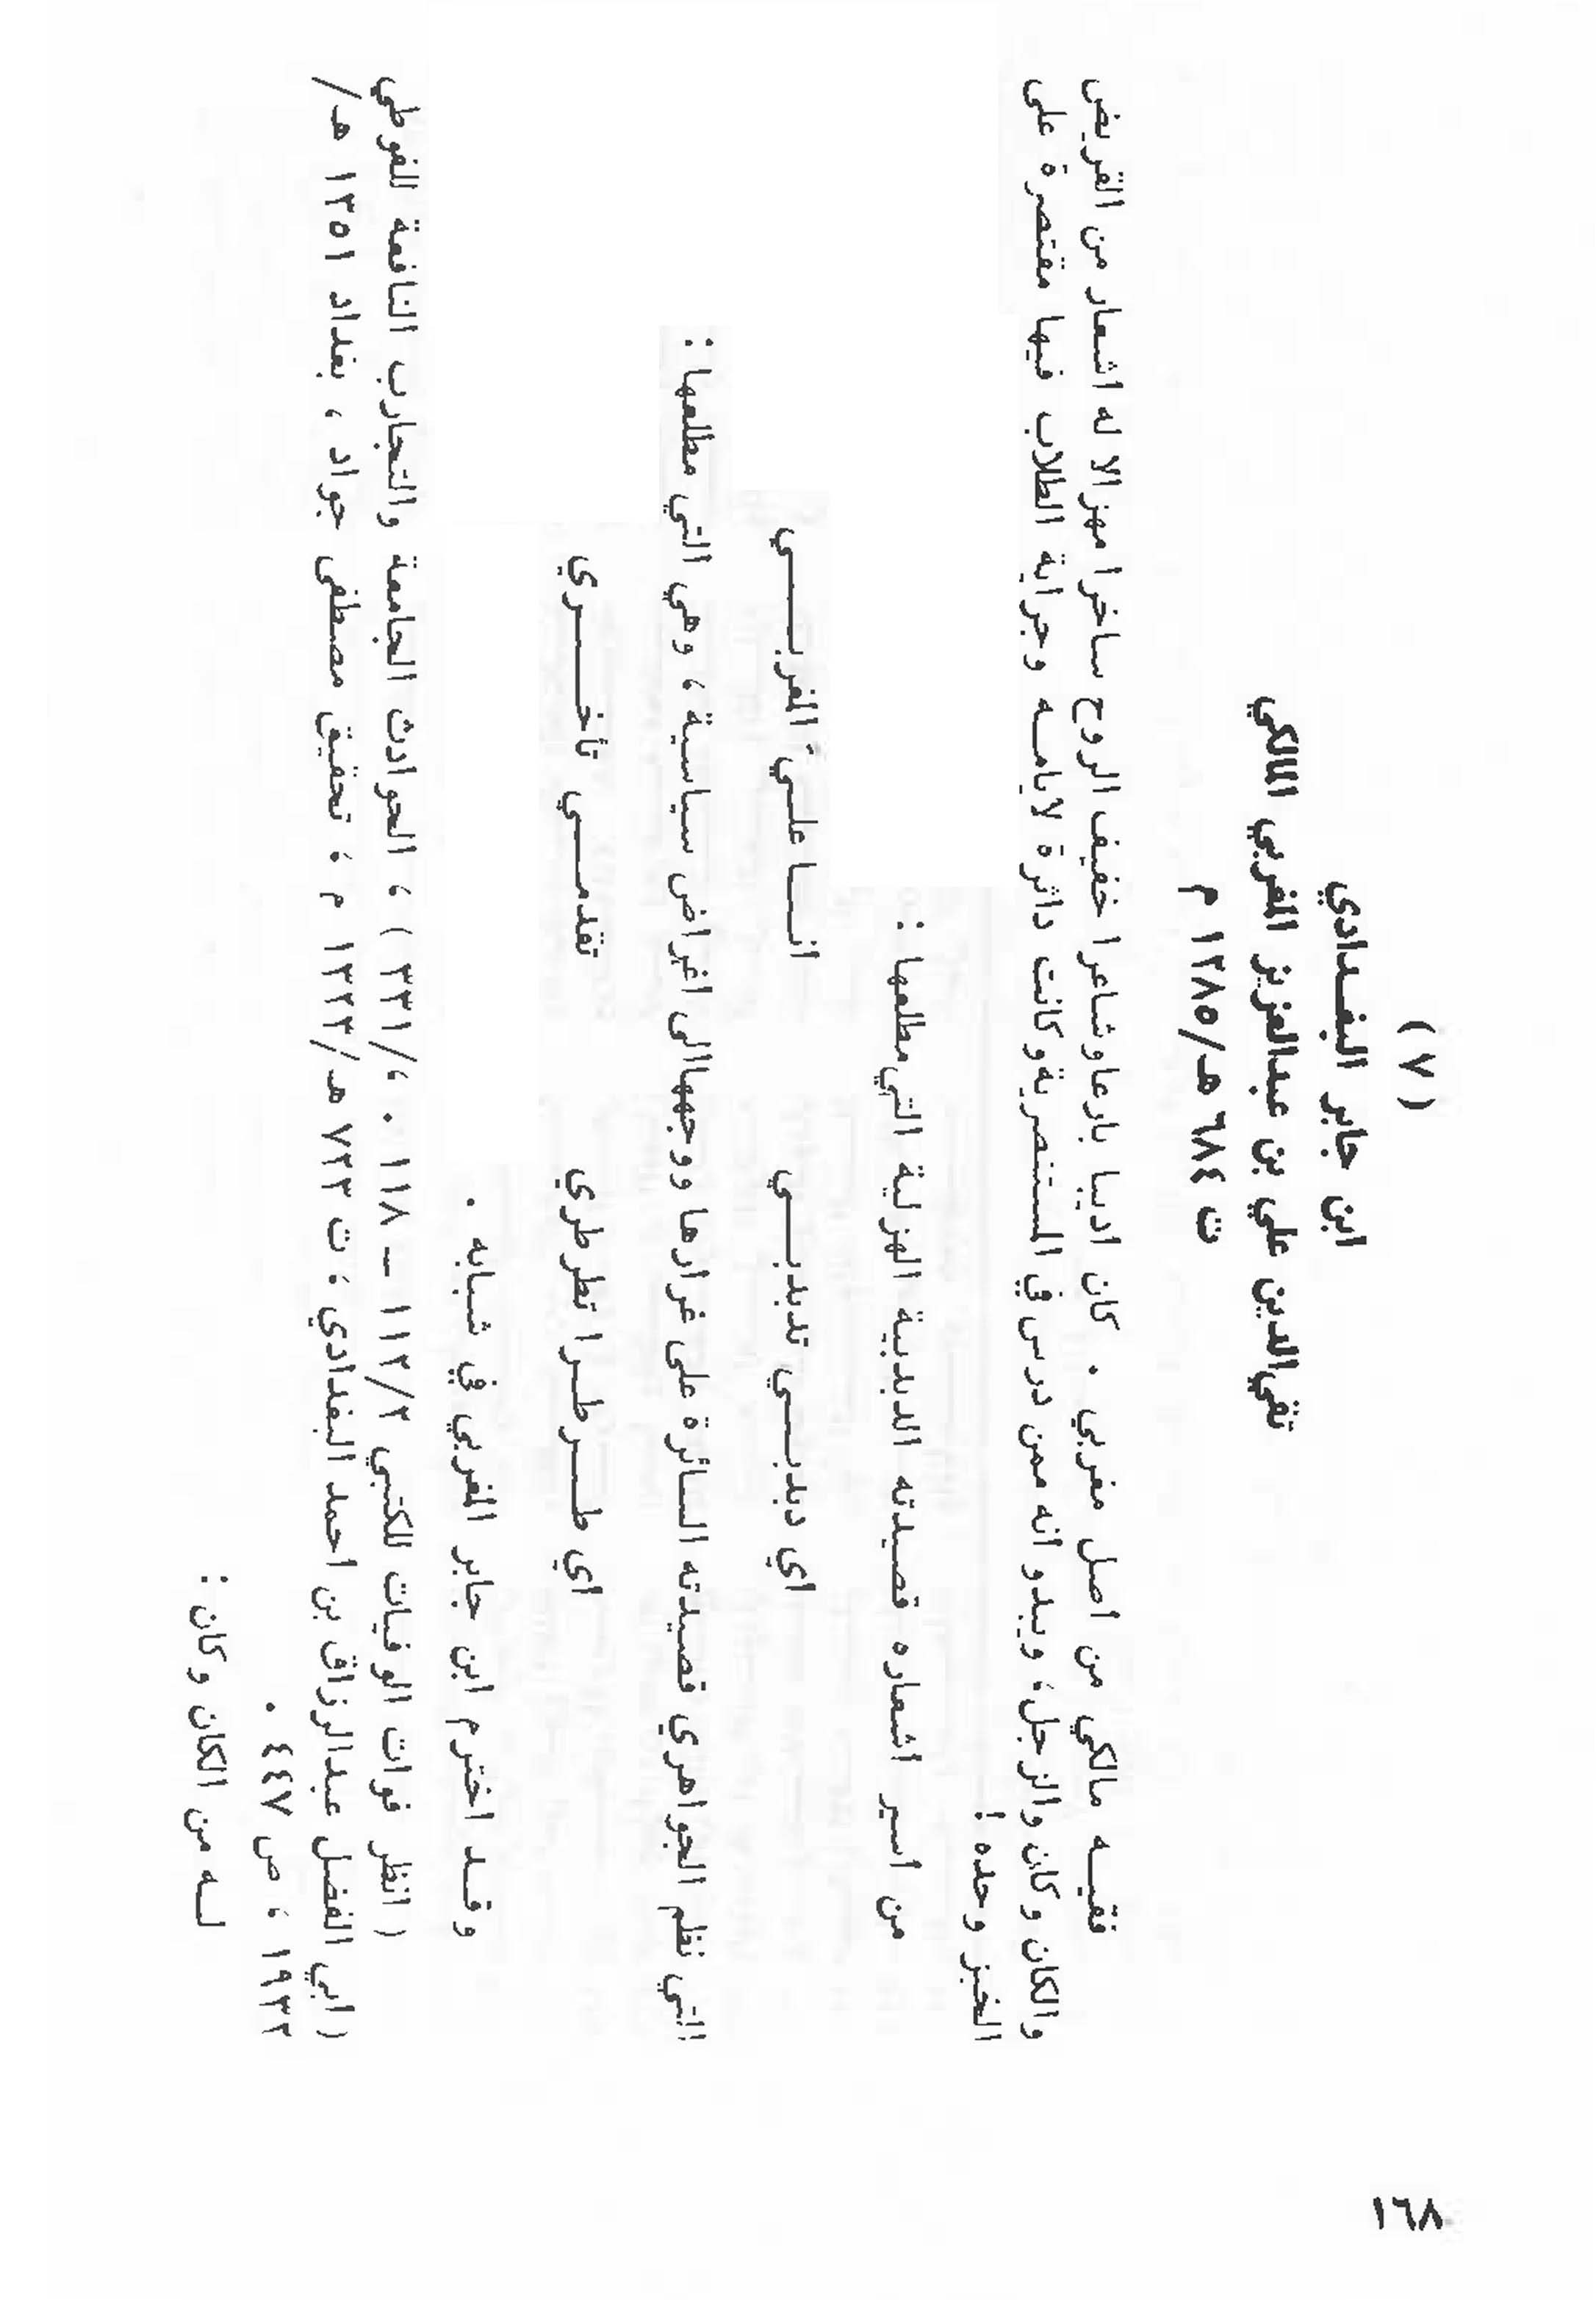 ( ٧ )
ابن جابر البغـدادي
تقي‌الدين علي بن عبدالعزيز المغربي المالكي
ت ٦٨٤ هـ/١٢٨٥ م
فقيـــه مالكي من اصل مغربي . كان اديبا بارعا وشاعرا خفيف الروح ساخرا مهزالا له اشعار من القريض
والكان وكان والزجل، ويبدو انه ممن درس في المستنصرية وكانت دائرة لايامـــه وجراية الطلاب فيها مقتصرة على
الخبز وحده !
من اسير اشعاره قصـيدته الدبدبية الهزلية التي مطلعها :
اي دبدبـــي تدبدبـــي    انــــا علـــيّ المغربـــــي
التي نظم الجواهري قصـيدته السـائرة على غرارها ووجهها الى اغراض سياسية ، وهي التي مطلعها :
اي طــــرطــــرا تطرطري    تقدمــــي تأخـــــري
وقـــد اخترم ابن جابر المغربي في شبابه .
( انظر فوات الوفيات للكتبي ١١٢/٢ – ١١٨ . ،/٣٣١ ) ، الحوادث الجامعة والتجارب النافعة للفوطي
( ابي الفضل عبدالرزاق بن احمد البغدادي ، ت ٧٢٣ هـ/١٣٢٣ م ، تحقيق مصطفى جواد ، بغداد ١٣٥١ هـ/
١٩٣٢ ، ص ٤٤٧ .
لـــه من الكان وكان :
١٦٨